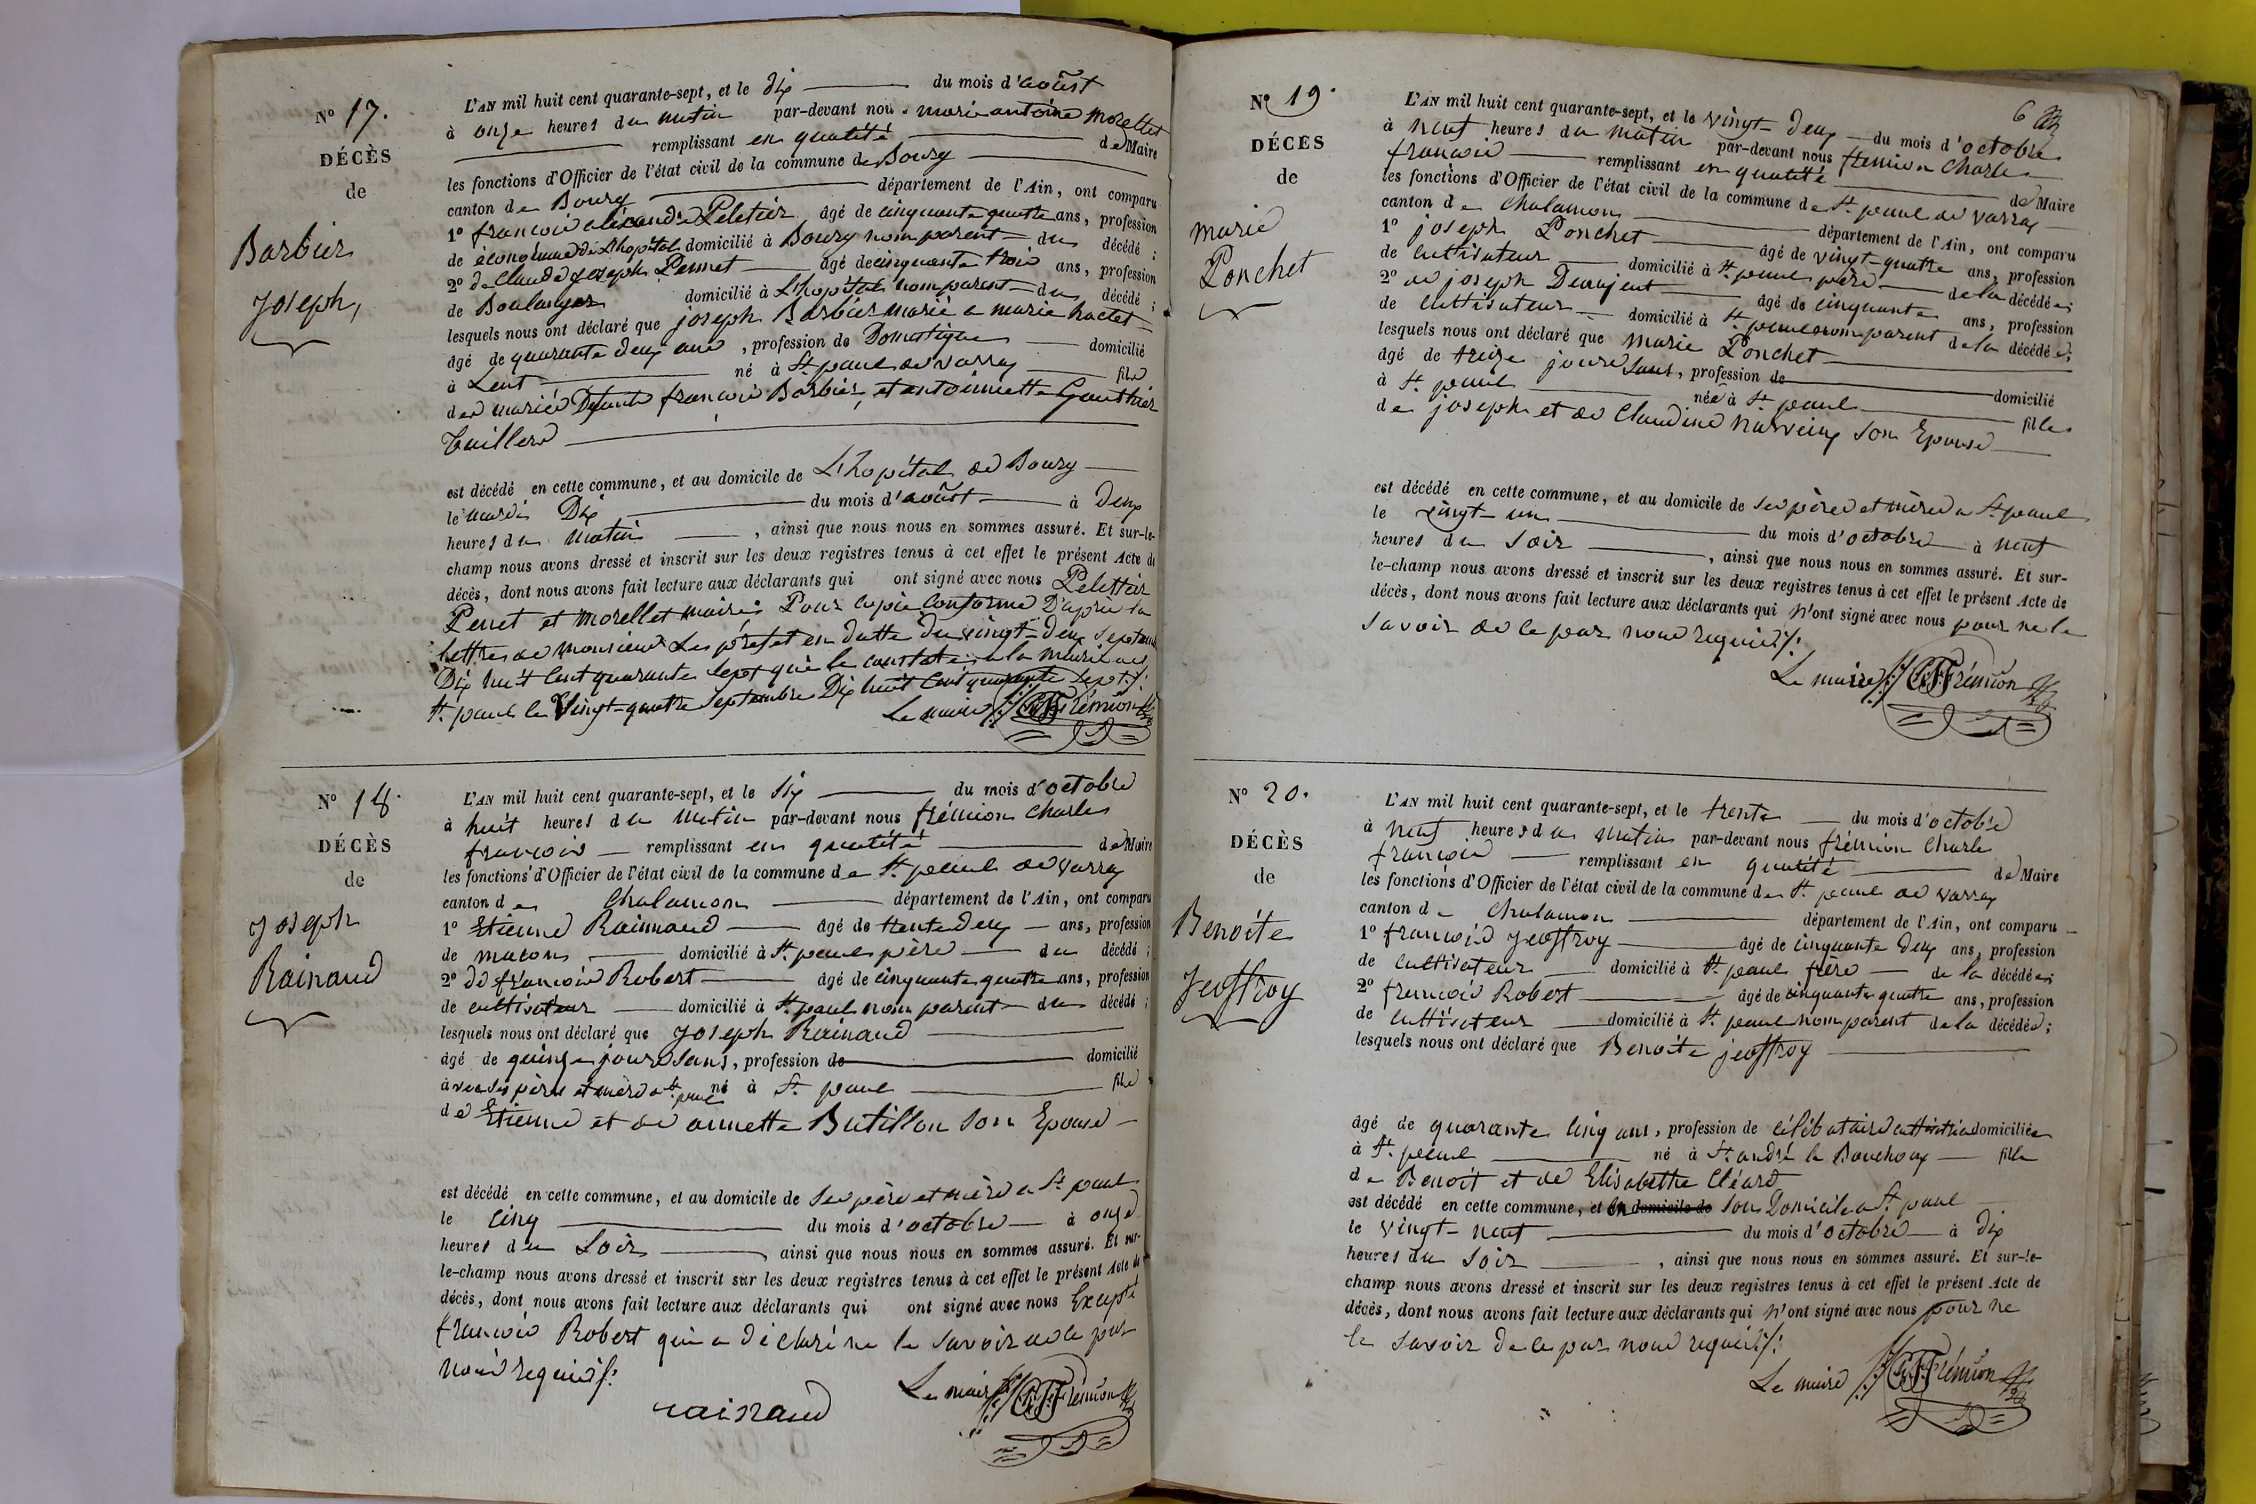 N° 17.
DÉCÈS
de
Barbier
Joseph,
L'AN mil huit cent quarante-sept, et le dix du mois d'août
à onze heures du matin par-devant nous marie antoine Morellet
remplissant en qualité de Maire
les fonctions d'Officier de l'état civil de la commune de Bourg
canton de Bourg département de l'Ain, ont comparu
1° françois alixandre Peletier âgé de cinquante quatre ans, profession
de économe de L'hopital domicilié à Bourg nom parent du décédé ;
2° de Claude Joseph Perret âgé de cinquante trois ans, profession
de Boulanger domicilié à L'hopital nom parent du décédé ;
lesquels nous ont déclaré que joseph Barbier marié a marie
âgé de quarante deux ans, profession de Domestique domicilié
à Lent né à St. paul de varax fils
des mariés Defunts françois Barbier, et antoinette Gauthier
est décédé en cette commune, et au domicile de L'hopital de Bourg
le mardi Dix du mois d'août à deux
heures du matin, ainsi que nous nous en sommes assuré. Et sur-le-
champ nous avons dressé et inscrit sur les deux registres tenus à cet effet le présent Acte de
décès, dont nous avons fait lecture aux déclarants qui ont signé avec nous Pelettier
Perret et Morellet maire; Pour copie conforme D'après la
lettre de monsieur Le préfet en datte du vingt-deux septembre
Dix huit Cent quarante sept qui le constate a la mairie de
St. paul le Vingt-quatre septembre Dix huit Cent quarante sept ./.
Le maire C.F. Frémion
N° 18.
DÉCÈS
de
Joseph
Rainaud
L'AN mil huit cent quarante-sept, et le six du mois d'octobre
à huit heures du matin par-devant nous frémion Charles
françois remplissant en qualité de Maire
les fonctions d'Officier de l'état civil de la commune de St. paul de varax
canton de Chalamon département de l'Ain, ont comparu
1° Etienne Rainnaud âgé de trente deux ans, profession
de macon domicilié à St. paul père du décédé ;
2° de françois Robert âgé de cinquante quatre ans, profession
de cultivateur domicilié à St. paul nom parent du décédé ;
lesquels nous ont déclaré que Joseph Rainaud
âgé de quinze jours sans, profession de domicilié
avec ses père et mère a St. paul né à St. paul fils
de Etienne et de annette Butillon son Epouse
est décédé en cette commune, et au domicile de ses père et mère a St. paul
le cinq du mois d'octobre à onze
heures du Soir, ainsi que nous nous en sommes assuré. Et sur-
le-champ nous avons dressé et inscrit sur les deux registres tenus à cet effet le présent Acte de
décès, dont nous avons fait lecture aux déclarants qui ont signé avec nous Excepté
françois Robert qui a déclaré ne le savoir de ce par
nous requis ./.
rainaud
Le maire C.F. Frémion
6
N° 19.
DÉCÈS
de
marie
Ponchet
L'AN mil huit cent quarante-sept, et le vingt-deux du mois d'octobre
à neuf heures du matin par-devant nous frémion Charles
françois remplissant en qualité de Maire
les fonctions d'Officier de l'état civil de la commune de St. paul de varax
canton de Chalamon département de l'Ain, ont comparu
1° joseph Ponchet âgé de vingt-quatre ans, profession
de cultivateur domicilié à St. paul père de la décédée;
2° de joseph âgé de cinquante ans, profession
de cultivateur domicilié à St. paul nom parent de la décédée;
lesquels nous ont déclaré que Marie Ponchet
âgé de treize jours sans, profession de domicilié
à St. paul née à St. paul fille
de joseph et de Claudine son Epouse
est décédé en cette commune, et au domicile de ses père et mère a St. paul
le vingt-un du mois d'octobre à neuf
heures du soir, ainsi que nous nous en sommes assuré. Et sur-
le-champ nous avons dressé et inscrit sur les deux registres tenus à cet effet le présent Acte de
décès, dont nous avons fait lecture aux déclarants qui n'ont signé avec nous pour ne le
savoir de ce par nous requis ./.
Le maire C.F. Frémion
N° 20.
DÉCÈS
de
Benoite
Jeoffroy
L'AN mil huit cent quarante-sept, et le trente du mois d'octobre
à neuf heures du matin par-devant nous frémion Charles
françois remplissant en qualité de Maire
les fonctions d'Officier de l'état civil de la commune de St. paul de varax
canton de Chalamon département de l'Ain, ont comparu
1° françois Jeoffroy âgé de cinquante deux ans, profession
de cultivateur domicilié à St. paul frère de la décédée;
2° francois Robert âgé de cinquante quatre ans, profession
de cultivateur domicilié à St. paul nom parent de la décédée;
lesquels nous ont déclaré que Benoite jeoffroy
âgé de quarante cinq ans, profession de célibataire cultivatrice domiciliée
à St. paul né à St. andré le Bouchoux fille
de Benoit et de Elisabethe Cléard
est décédé en cette commune, et en domicile de son Domicile a St. paul
le vingt-neuf du mois d'octobre à dix
heures du soir, ainsi que nous nous en sommes assuré. Et sur-le-
champ nous avons dressé et inscrit sur les deux registres tenus à cet effet le présent Acte de
décès, dont nous avons fait lecture aux déclarants qui n'ont signé avec nous pour ne
le savoir de ce par nous requis ./.
Le maire C.F. Frémion